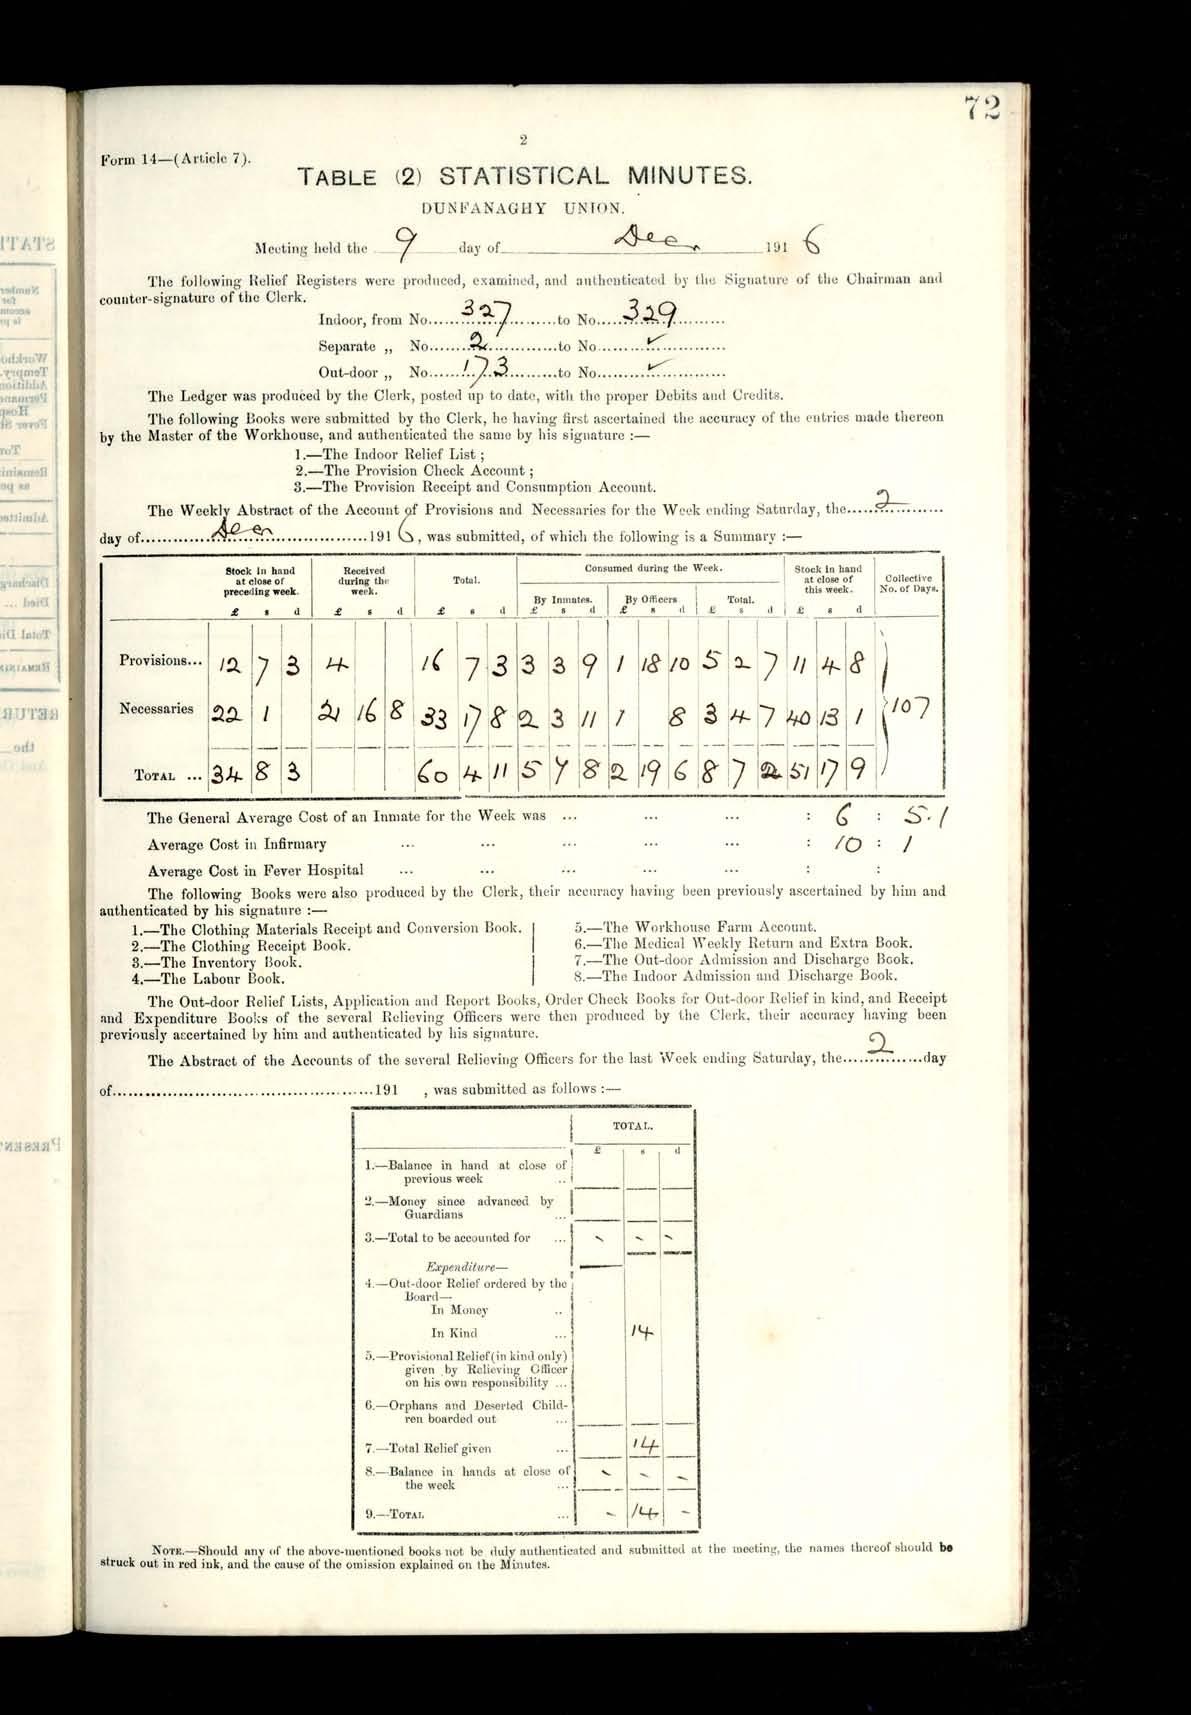 72
2
Form 14—(Article 7).
TABLE (2) STATISTICAL MINUTES.
DUNFANAGHY UNION.
Meeting held the 9 day of Decr 191 6
The following Relief Registers were produced, examined, and authenticated by the Signature of the Chairman and
counter-signature of the Clerk.
Indoor, from No. 327 to No. 329
Separate „ No. 2 to No. ✓
Out-door „ No. 173 to No. ✓
The Ledger was produced by the Clerk, posted up to date, with the proper Debits and Credits.
The following Books were submitted by the Clerk, he having first ascertained the accuracy of the entries made thereon
by the Master of the Workhouse, and authenticated the same by his signature :—
1.—The Indoor Relief List ;
2.—The Provision Check Account ;
3.—The Provision Receipt and Consumption Account.
The Weekly Abstract of the Account of Provisions and Necessaries for the Week ending Saturday, the 2
day of Decr 191 6, was submitted, of which the following is a Summary :—
Stock in hand at close of preceding week. Received during the week. Total. Consumed during the Week. Stock in hand at close of this week. Collective No. of Days.
By Inmates. By Officers Total.
£ s d £ s d £ s d £ s d £ s d £ s d £ s d
Provisions... 12 7 3 4 16 7 3 3 3 9 1 18 10 5 2 7 11 4 8
Necessaries 22 1 21 16 8 33 17 8 2 3 11 1 8 3 4 7 40 13 1 107
TOTAL ... 34 8 3 60 4 11 5 7 8 2 19 6 8 7 2 51 17 9
The General Average Cost of an Inmate for the Week was ... ... ... : 6 : 5.1
Average Cost in Infirmary ... ... ... ... ... : 10 : 1
Average Cost in Fever Hospital ... ... ... ... ... : :
The following Books were also produced by the Clerk, their accuracy having been previously ascertained by him and
authenticated by his signature :—
1.—The Clothing Materials Receipt and Conversion Book.
2.—The Clothing Receipt Book.
3.—The Inventory Book.
4.—The Labour Book.
5.—The Workhouse Farm Account.
6.—The Medical Weekly Return and Extra Book.
7.—The Out-door Admission and Discharge Book.
8.—The Indoor Admission and Discharge Book.
The Out-door Relief Lists, Application and Report Books, Order Check Books for Out-door Relief in kind, and Receipt
and Expenditure Books of the several Relieving Officers were then produced by the Clerk, their accuracy having been
previously accertained by him and authenticated by his signature.
The Abstract of the Accounts of the several Relieving Officers for the last Week ending Saturday, the 2 day
of 191 , was submitted as follows :—
TOTAL.
£ s d
1.—Balance in hand at close of
previous week ..
2.—Money since advanced by
Guardians ...
3.—Total to be accounted for ...
Expenditure—
4.—Out-door Relief ordered by the
Board—
In Money ..
In Kind ... 14
5.—Provisional Relief (in kind only)
given by Relieving Officer
on his own responsibility ...
6.—Orphans and Deserted Child-
ren boarded out ...
7.—Total Relief given ... 14
8.—Balance in hands at close of
the week ...
9.—TOTAL ... - 14 -
NOTE.—Should any of the above-mentioned books not be duly authenticated and submitted at the meeting, the names thereof should be
struck out in red ink, and the cause of the omission explained on the Minutes.